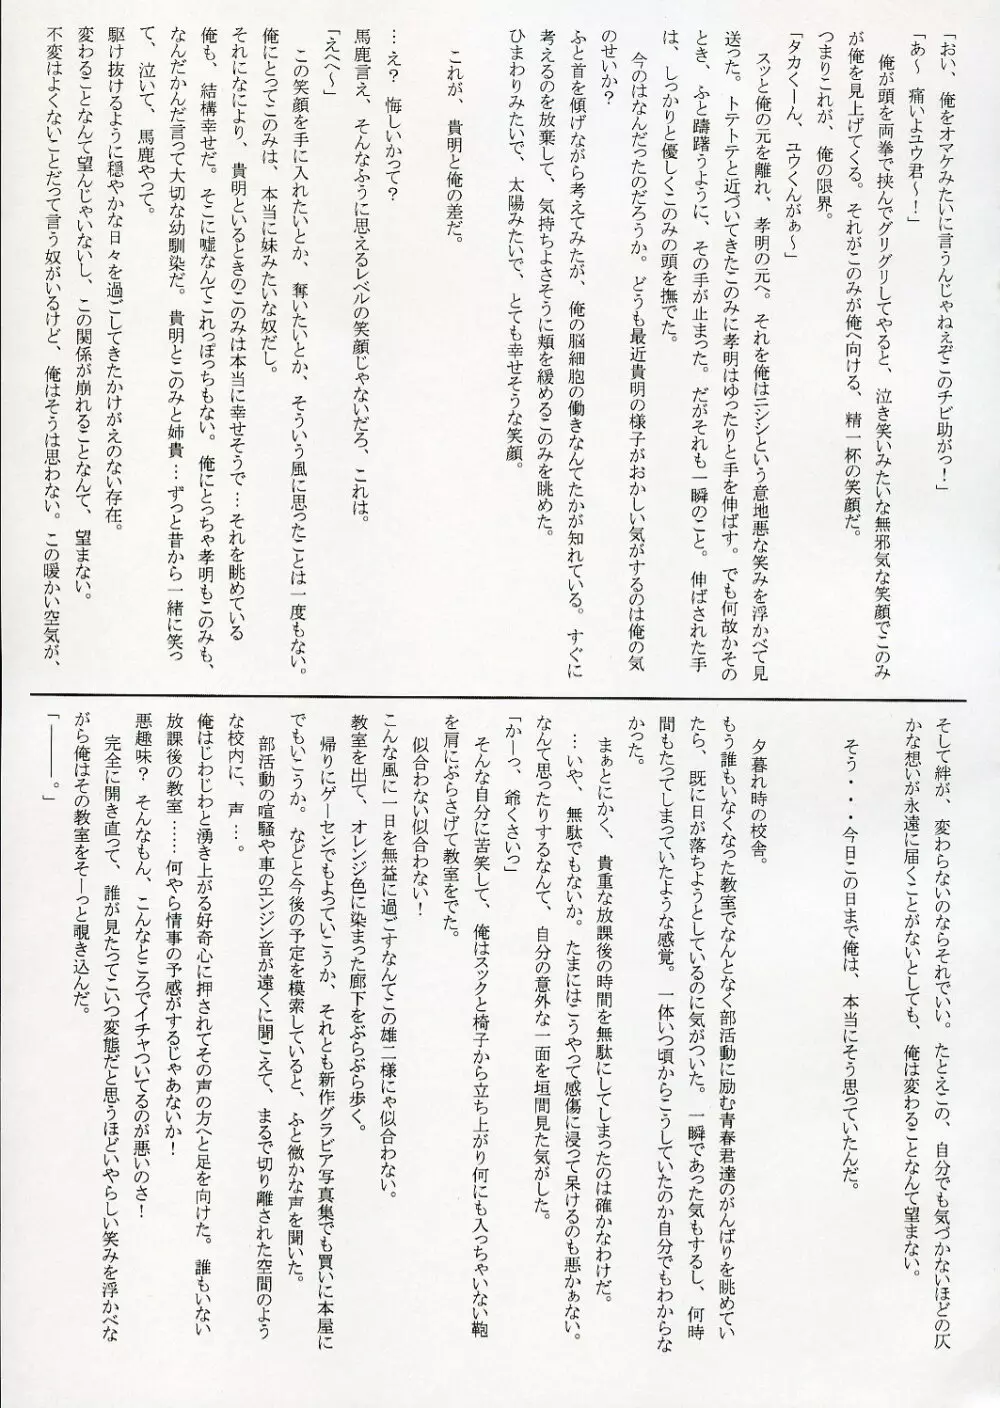 「おい、俺をオマケみたいに言うんじゃねぇぞこのチビ助がっ！」
「あ～　痛いよユウ君～！」
　俺が頭を両拳で挟んでグリグリしてやると、泣き笑いみたいな無邪気な笑顔でこのみ
が俺を見上げてくる。それがこのみが俺へ向ける、精一杯の笑顔だ。
つまりこれが、俺の限界。
「タカくーん、ユウくんがぁ～」
　スッと俺の元を離れ、孝明の元へ。それを俺はニシシという意地悪な笑みを浮かべて見
送った。トテトテと近づいてきたこのみに孝明はゆったりと手を伸ばす。でも何故かその
とき、ふと躊躇うように、その手が止まった。だがそれも一瞬のこと。伸ばされた手
は、しっかりと優しくこのみの頭を撫でた。
　今のはなんだったのだろうか。どうも最近貴明の様子がおかしい気がするのは俺の気
のせいか？
ふと首を傾げながら考えてみたが、俺の脳細胞の働きなんてたかが知れている。すぐに
考えるのを放棄して、気持ちよさそうに頬を緩めるこのみを眺めた。
ひまわりみたいで、太陽みたいで、とても幸せそうな笑顔。
　これが、貴明と俺の差だ。
　…え？　悔しいかって？
馬鹿言え、そんなふうに思えるレベルの笑顔じゃないだろ、これは。
「えへ～」
　この笑顔を手に入れたいとか、奪いたいとか、そういう風に思ったことは一度もない。
俺にとってこのみは、本当に妹みたいな奴だし。
それになにより、貴明といるときのこのみは本当に幸せそうで…それを眺めている
俺も、結構幸せだ。そこに嘘なんてこれっぽっちもない。俺にとっちゃ孝明もこのみも、
なんだかんだ言って大切な幼馴染だ。貴明とこのみと姉貴…ずっと昔から一緒に笑っ
て、泣いて、馬鹿やって。
駆け抜けるように穏やかな日々を過ごしてきたかけがえのない存在。
変わることなんて望んじゃいないし、この関係が崩れることなんて、望まない。
不変はよくないことだって言う奴がいるけど、俺はそうは思わない。この暖かい空気が、
そして絆が、変わらないのならそれでいい。たとえこの、自分でも気づかないほどの仄
かな想いが永遠に届くことがないとしても、俺は変わることなんて望まない。
　そう・・・今日この日まで俺は、本当にそう思っていたんだ。
　夕暮れ時の校舎。
もう誰もいなくなった教室でなんとなく部活動に励む青春君達のがんばりを眺めてい
たら、既に日が落ちようとしているのに気がついた。一瞬であった気もするし、何時
間もたってしまっていたような感覚。一体いつ頃からこうしていたのか自分でもわからな
かった。
　まぁとにかく、貴重な放課後の時間を無駄にしてしまったのは確かなわけだ。
　…いや、無駄でもないか。たまにはこうやって感傷に浸って呆けるのも悪かぁない。
なんて思ったりするなんて、自分の意外な一面を垣間見た気がした。
「かーっ、爺くさいっ」
　そんな自分に苦笑して、俺はスックと椅子から立ち上がり何にも入っちゃいない鞄
を肩にぶらさげて教室をでた。
　似合わない似合わない！
こんな風に一日を無益に過ごすなんてこの雄二様にゃ似合わない。
教室を出て、オレンジ色に染まった廊下をぶらぶら歩く。
　帰りにゲーセンでもよっていこうか、それとも新作グラビア写真集でも買いに本屋に
でもいこうか。などと今後の予定を模索していると、ふと微かな声を聞いた。
　部活動の喧騒や車のエンジン音が遠くに聞こえて、まるで切り離された空間のよう
な校内に、声…。
俺はじわじわと湧き上がる好奇心に押されてその声の方へと足を向けた。誰もいない
放課後の教室……何やら情事の予感がするじゃあないか！
悪趣味？　そんなもん、こんなところでイチャついてるのが悪いのさ！
　完全に開き直って、誰が見たってこいつ変態だと思うほどいやらしい笑みを浮かべな
がら俺はその教室をそーっと覗き込んだ。
「―――。」